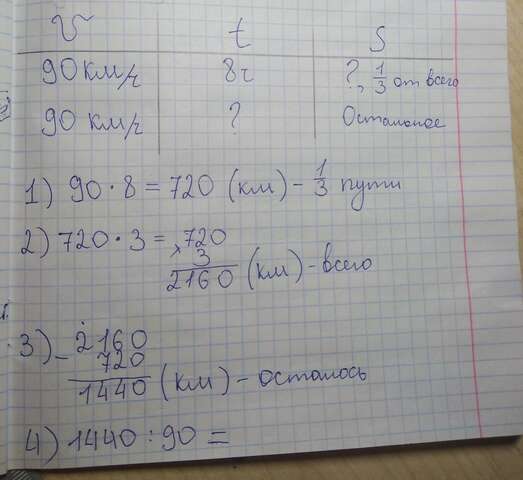 v t S
90 км/ч 8 ч ?, 1/3 от всего
90 км/ч ? Остальное
1) 90 · 8 = 720 (км) – 1/3 пути
2) 720 · 3 = 720
× 3
2160 (км) – всего
3) – 2160
720
1440 (км) – осталось
4) 1440 : 90 =